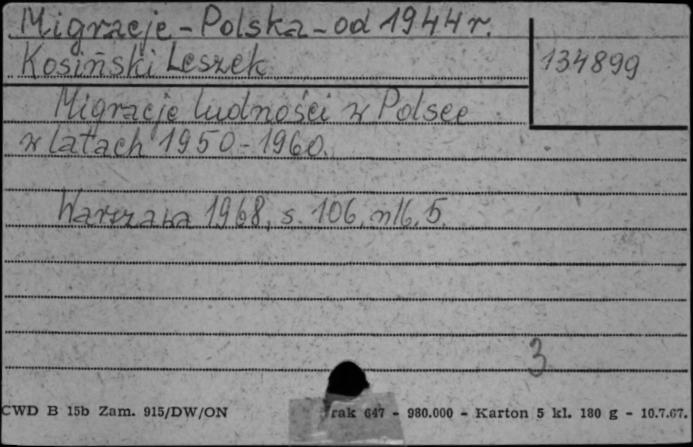 Migracje - Polska - od 1944 r.
Kosiński Leszek
134899
Migracje ludności w Polsce
w latach 1950-1960.
Warszawa 1968, s. 106, nlb. 5.
3
CWD B 15b Zam. 915/DW/ON
rak 647 - 980.000 - Karton 5 kl. 180 g - 10.7.67.